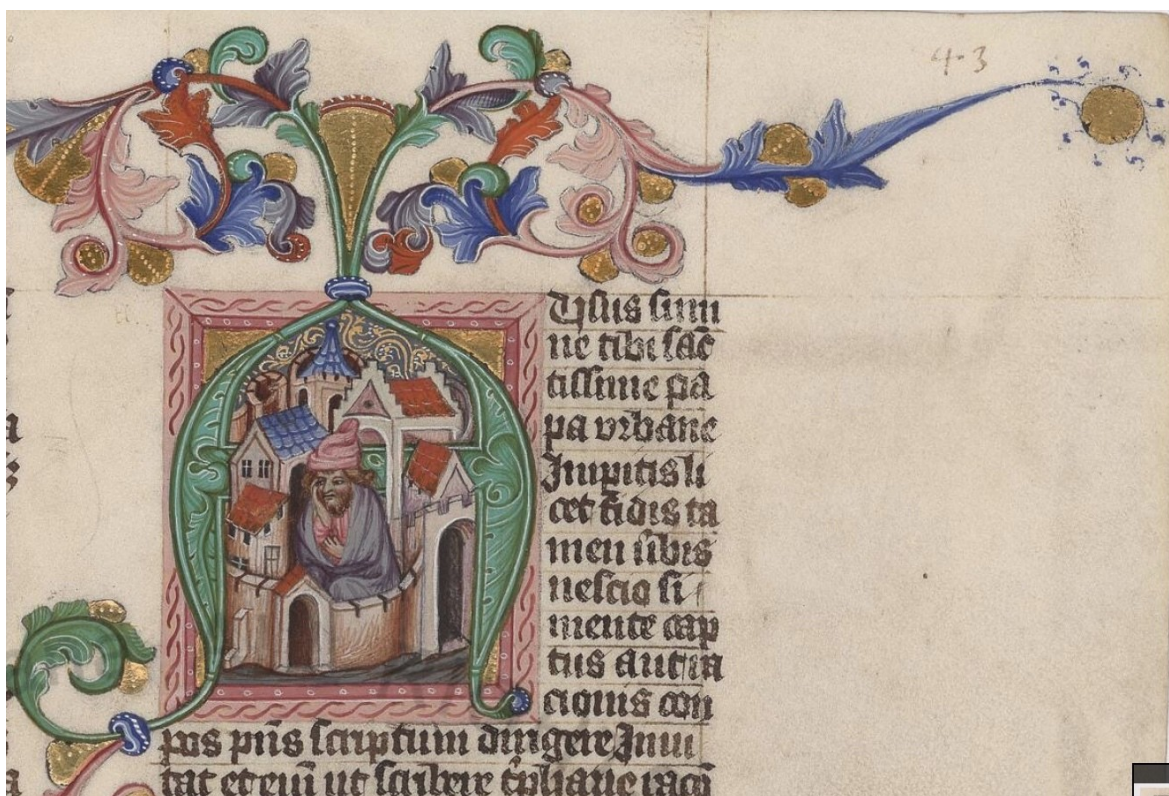 4-3
Ausus sum
ne tibi sāc
tissime pa
pa vrbane
Impitis li
cet t̄dis ta
men ūbis
nescio si
mente cap
tus aut ra
cionis con
pos pn̄s scriptum dirigere Inui
tat et eni ut scribere